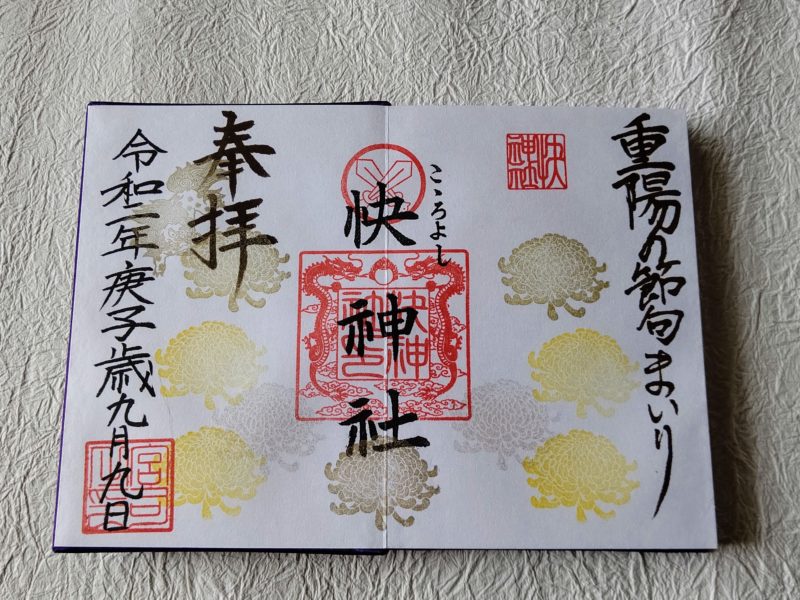 重陽の節句まいり
快神社
こゝろよし
快神社
奉拝
令和二年庚子歳九月九日